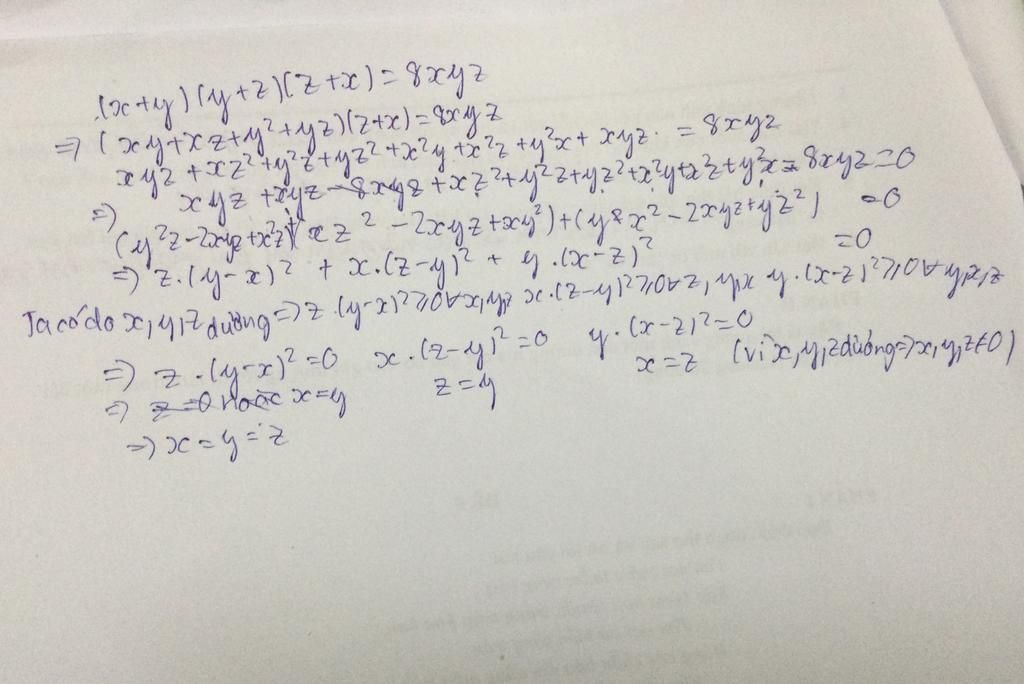 (x+y)(y+z)(z+x)=8xyz
=> (xy+xz+y²+yz)(z+x)=8xyz
xyz+xz²+y²z+yz²+x²y+x²z+y²x+xyz. =8xyz
=> xyz+xyz-8xyz+xz²+y²z+yz²+x²y+x²z+y²x=8xyz=0
(y²z-2xyz+x²z)+(xz²-2xyz+xy²)+(yx²-2xyz+yz²) =0
=> z.(y-x)²+x.(z-y)²+y.(x-z)² =0
Ta có do x,y,z dương => z.(y-x)²≥0∀x,y,z x.(z-y)²≥0∀z,y,x y.(x-z)²≥0∀y,x,z
=> z.(y-x)²=0 x.(z-y)²=0 y.(x-z)²=0
=> z=0 hoặc x=y z=y x=z (vì x,y,z dương=>x,y,z≠0)
=> x=y=z